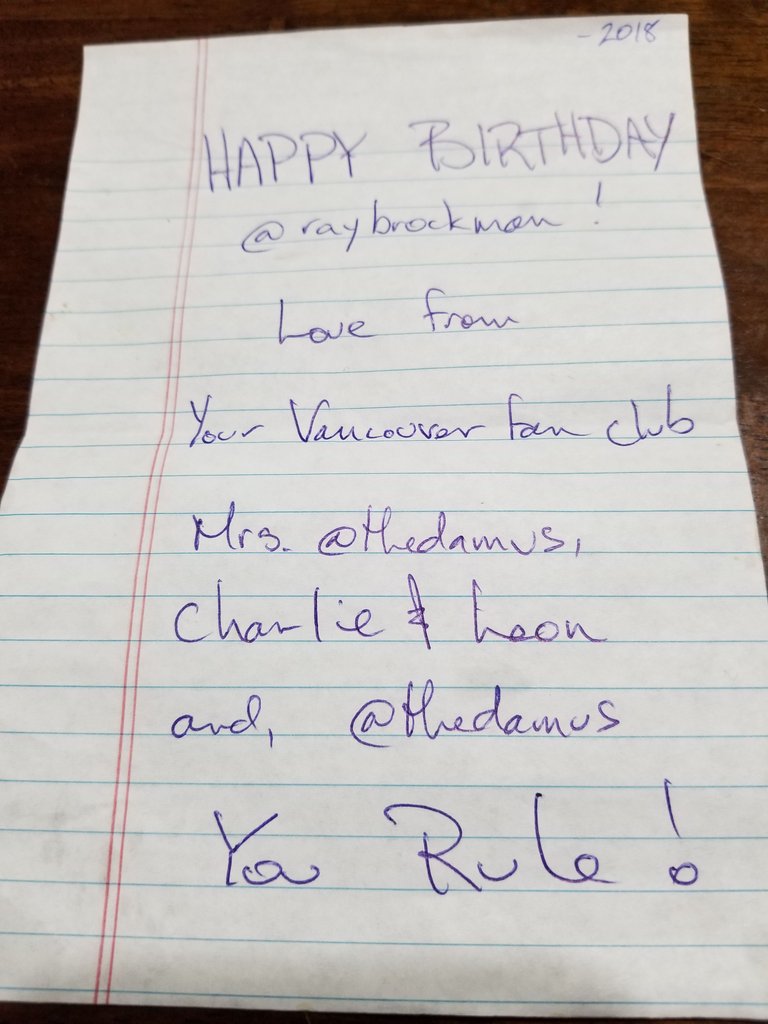 - 2018
HAPPY BIRTHDAY
@raybrockman !
Love from
Your Vancouver fan club
Mrs. @thedamus,
Charlie & Leon
and, @thedamus
You Rule!